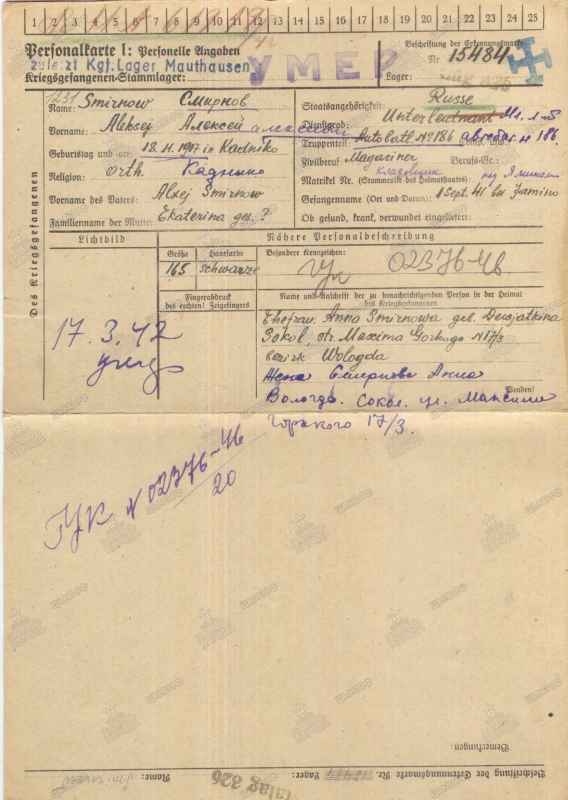 1 2 3 4 5 6 7 8 9 10 11 12 13 14 15 16 17 18 19 20 21 22 23 24 25
Personalkarte I: Personelle Angaben
Beschriftung der Erkennungsmarke
Nr. 15484
zuletzt Kgf.Lager Mauthausen
УМЕР
Kriegsgefangenen-Stammlager:
Lager:
Des Kriegsgefangenen
Name: Smirnow Смирнов
Vorname: Aleksej Алексей
Geburtstag und -ort: in Kadniko
Religion: orth.
Vorname des Vaters: Alxej Smirnow
Familienname der Mutter: Ekaterina geb. ?
Staatsangehörigkeit: Russe
Dienstgrad: Unterleutnant
Truppenteil: Autobatl. No 186
Zivilberuf: Magasiner Berufs-Gr.:
Matrikel Nr. (Stammrolle des Heimatstaats):
Gefangenname (Ort und Datum): 1 Sept. 41 bei Jamino
Ob gesund, krank, verwundet eingeliefert:
Lichtbild
Nähere Personalbeschreibung
Größe Haarfarbe
165 schwarze
Besondere Kennzeichen:
02376-46.
Fingerabdruck
des rechten! Zeigefingers
Name und Anschrift der zu benachrichtigenden Person in der Heimat
des Kriegsgefangenen
Ehefrau. Anna Smirnowa geb. Dewjatkina
Sokol, str. Maxima Gorkogo N 17/3
bezirk Wologda
Жена Смирнова Анна
Wenden!
Вологда. Сокол. ул. Максима
Горького 17/3.
17.3.42
N 02376-46
20
Bemerkungen:
Beschriftung der Erkennungsmarke Nr. 15484 Lager: Stalag 326 Name: Smirnow
ЦАМО РФ